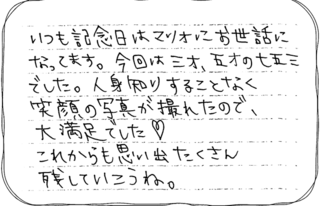 いつも記念日はマリオにお世話に
なってます。今回は三才、五才の七五三
でした。人身知りすることなく
笑顔の写真が撮れたので、
大満足でした♡
これからも思い出たくさん
残していこうね。